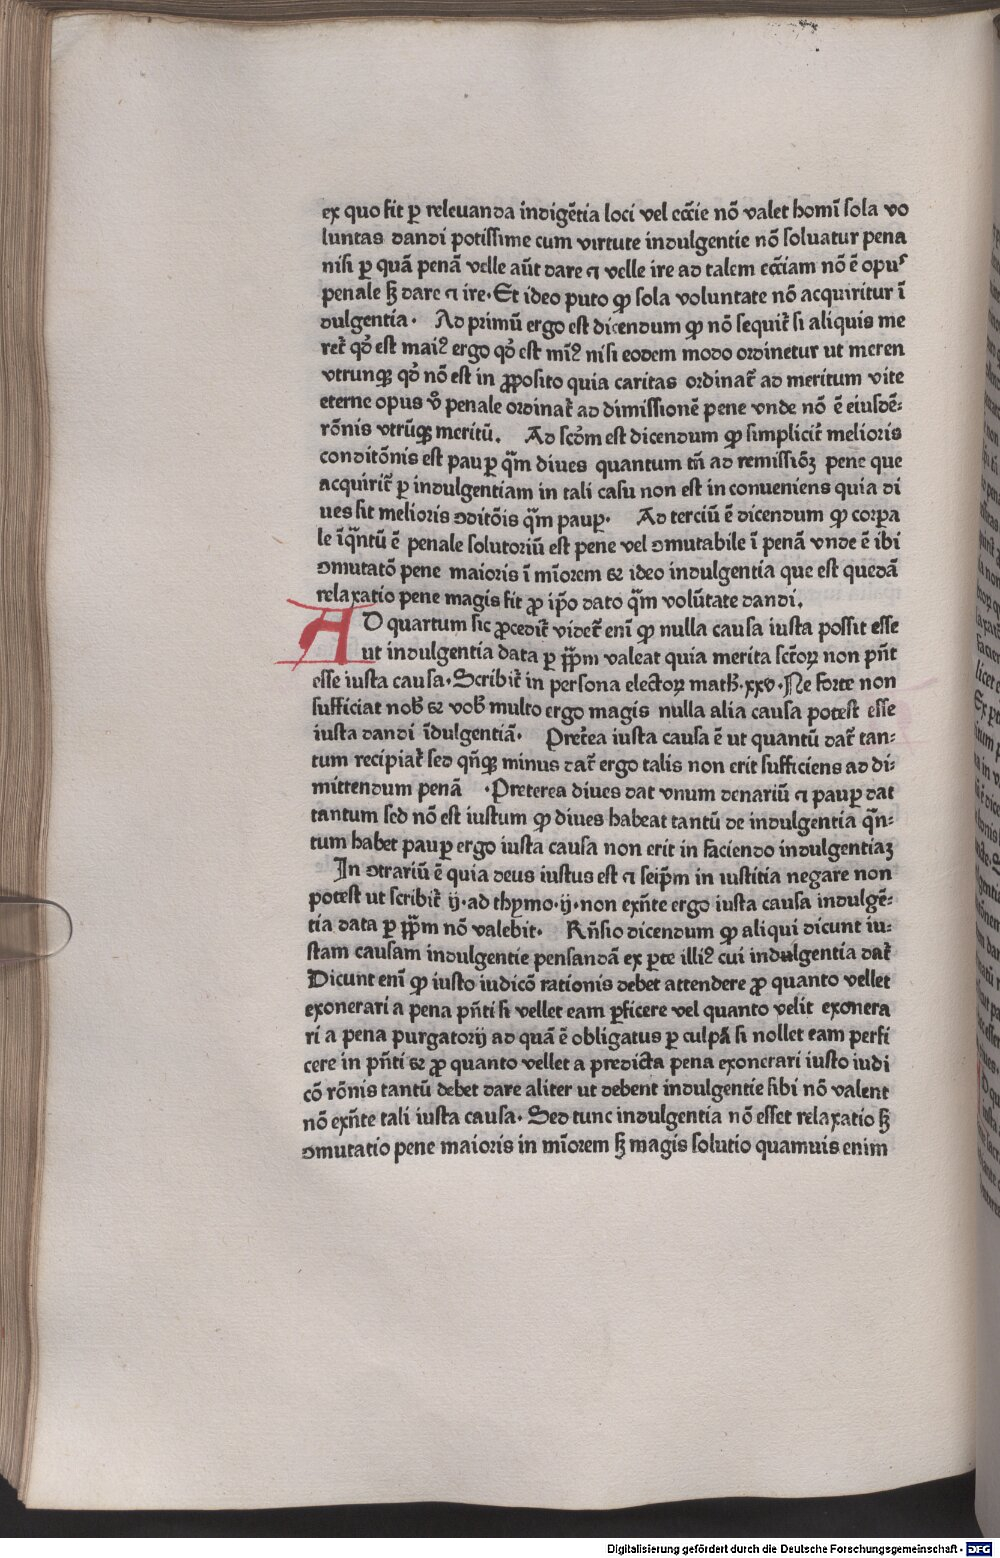 ex quo fit ꝑ releuanda indigẽtia loci vel ecc̃ie nõ valet homĩ sola vo
luntas dandi potissime cum virtute indulgentie nõ soluatur pena
nisi ꝑ quã penã velle aũt dare ⁊ velle ire ad talem ecc̃iam nõ ẽ opuˢ
penale ſꝫ dare ⁊ ire·Et ideo puto ꝙ sola voluntate nõ acquiritur ĩ
dulgentia· Ad primũ ergo est dicendum ꝙ nõ sequit̃ si aliquis me
ret̃ qđ est maiꝰ ergo qđ est mĩꝰ nisi eodem modo ordinetur ut meren
vtrunqꝫ qđ nõ est in ꝓposito quia caritas ordinat̃ ad meritum vite
eterne opus v̊ penale ordinat̃ ad dimissionẽ pene vnde nõ ẽ eiusdẽ:
rõnis vtrũqꝫ meritũ. Ad scđm est dicendum ꝙ simplicit̃ melioris
conditõnis est pauꝑ q̃m diues quantum tñ ad remissiõꝫ pene que
acquirit̃ ꝑ indulgentiam in tali casu non est in conueniens quia di
ues sit melioris ꝯditõis q̃m pauꝑ· Ad terciũ ẽ dicendum ꝙ corꝑa
le ĩq̃ntũ ẽ penale solutoriũ est pene vel ꝯmutabile ĩ penã vnde ẽ ibi
ꝯmutatõ pene maioris ĩ mĩorem ⁊ ideo indulgentia que est quedã
relaxatio pene magis fit ꝓ ip̃o dato q̃m volũtate dandi.
AD quartum sic ꝓcedit̃ videt̃ enĩ ꝙ nulla causa iusta possit esse
ut indulgentia data ꝑ p̃p̃m valeat quia merita sc̃toꝝ non pñt
esse iusta causa·Scribit̃ in persona electoꝝ matħ·xxv·Ne forte non
sufficiat nob̃ ⁊ vob̃ multo ergo magis nulla alia causa potest esse
iusta dandi ĩdulgentiã· Pret̃ea iusta causa ẽ ut quantũ dat̃ tan:
tum recipiat̃ sed qñqꝫ minus dat̃ ergo talis non erit sufficiens ad di:
mittendum penã ·Preterea diues dat vnum denariũ ⁊ pauꝑ dat
tantum sed nõ est iustum ꝙ diues habeat tantũ de indulgentia q̃n:
tum habet pauꝑ ergo iusta causa non erit in faciendo indulgentiaꝫ
In ꝯtrariũ ẽ quia deus iustus est ⁊ seip̃m in iustitia negare non
potest ut scribit̃ ij·ad thymo·ij·non exñte ergo iusta causa indulgẽ:
tia data ꝑ p̃p̃m nõ valebit· Rñsio dicendum ꝙ aliqui dicunt iu:
stam causam indulgentie pensandã ex ꝑte illiꝰ cui indulgentia dat̃
Dicunt enĩ ꝙ iusto iudicõ rationis debet attendere ꝓ quanto vellet
exonerari a pena pñti si vellet eam ꝑficere vel quanto velit exonera
ri a pena purgatorij ad quã ẽ obligatus ꝑ culpã si nollet eam perfi
cere in pñti ⁊ ꝓ quanto vellet a predicta pena exonerari iusto iudi
cõ rõnis tantũ debet dare aliter ut debent indulgentie sibi nõ valent
nõ exñte tali iusta causa· Sed tunc indulgentia nõ esset relaxatio ſꝫ
ꝯmutatio pene maioris in mĩorem ſꝫ magis solutio quamuis enim
Digitalisierung gefördert durch die Deutsche Forschungsgemeinschaft - DFG